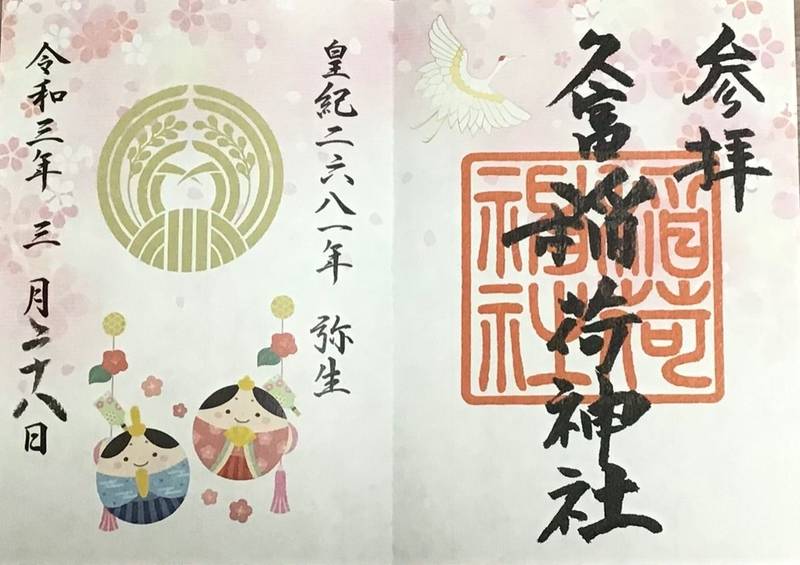 参拝
久富稲荷神社
稲荷神社
皇紀二六八一年 弥生
令和三年 三月二十八日